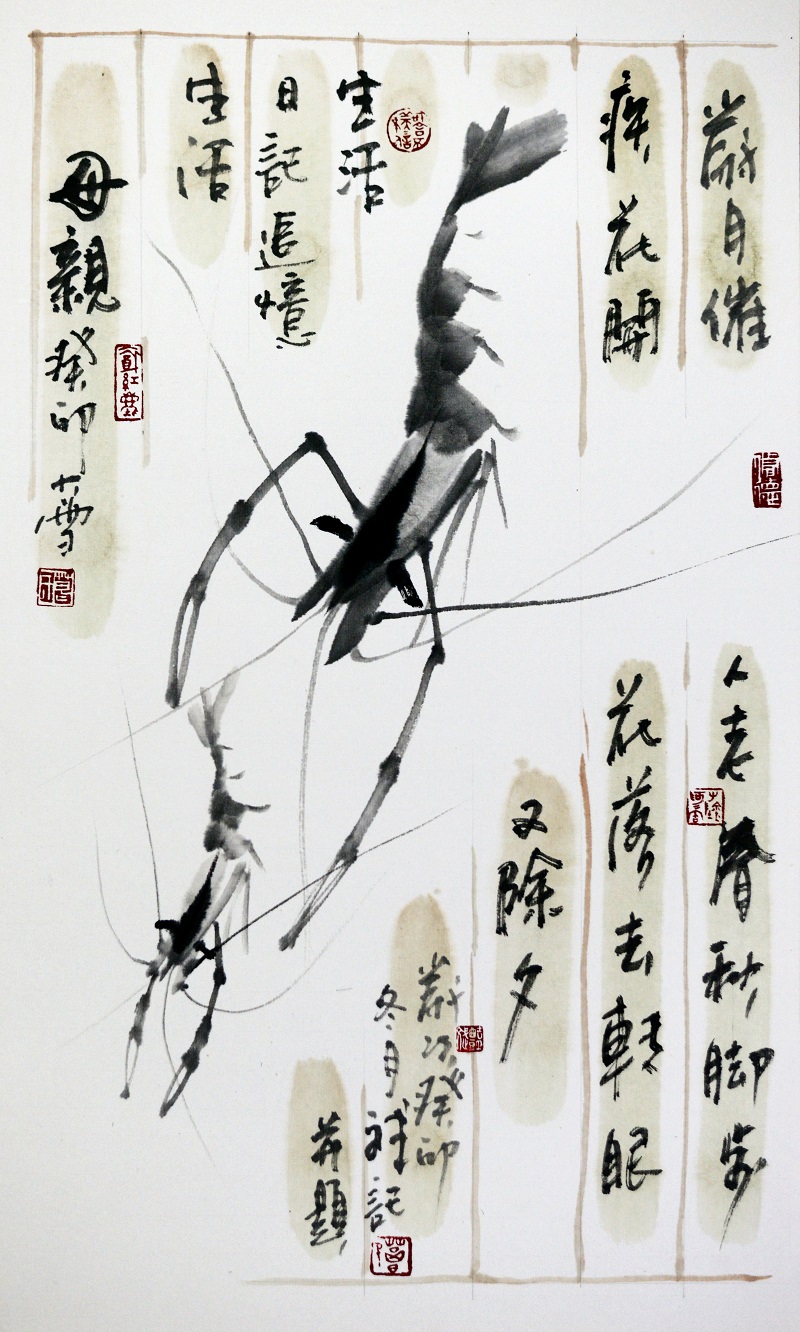 歲月催
人老春秋脚步
疾花開
花落去轉眼
又除夕
歲次癸卯
冬月記
并題
生活
日記追憶
生活
母親癸卯